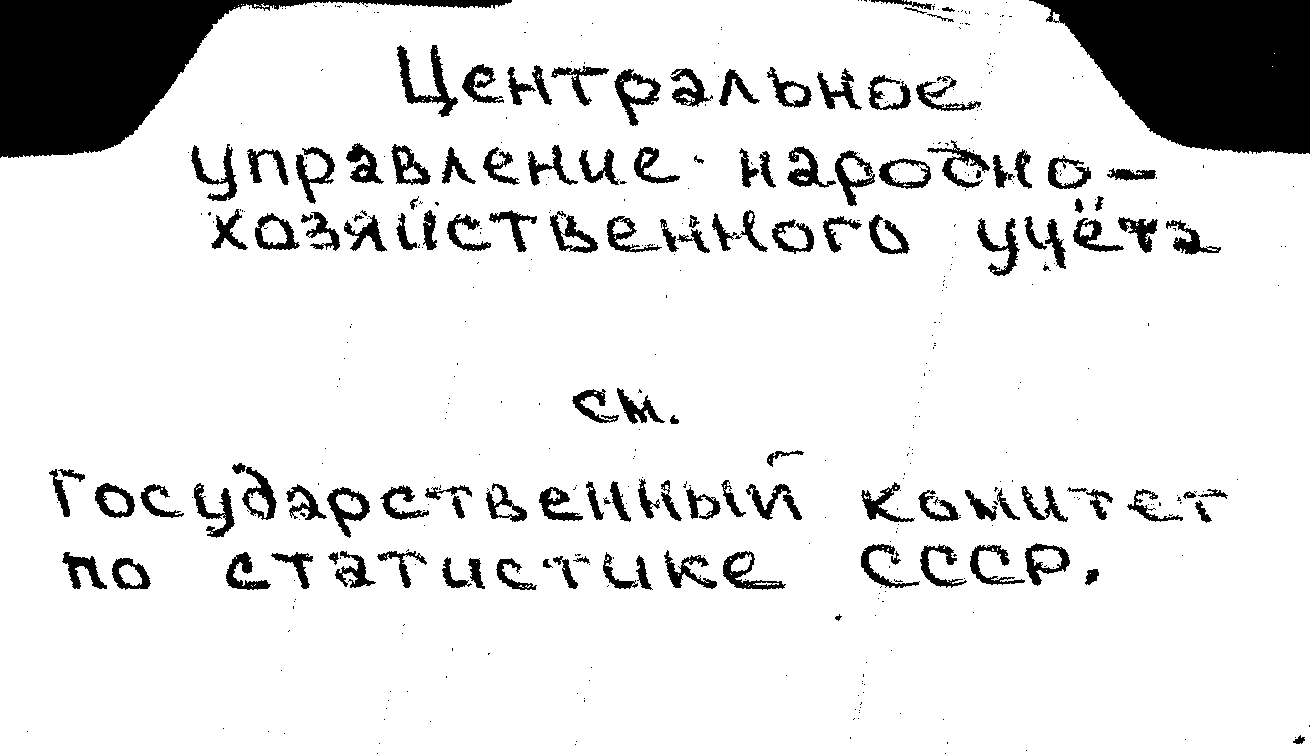 Центральное
управление народно-
хозяйственного учёта
см.
Государственный комитет
по статистике СССР.